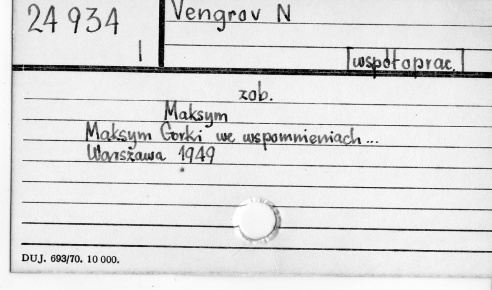 24 934
I
Vengrov N
[współoprac.]
zob.
Maksym
Maksym Gorki we wspomnieniach...
Warszawa 1949
DUJ. 693/70. 10 000.